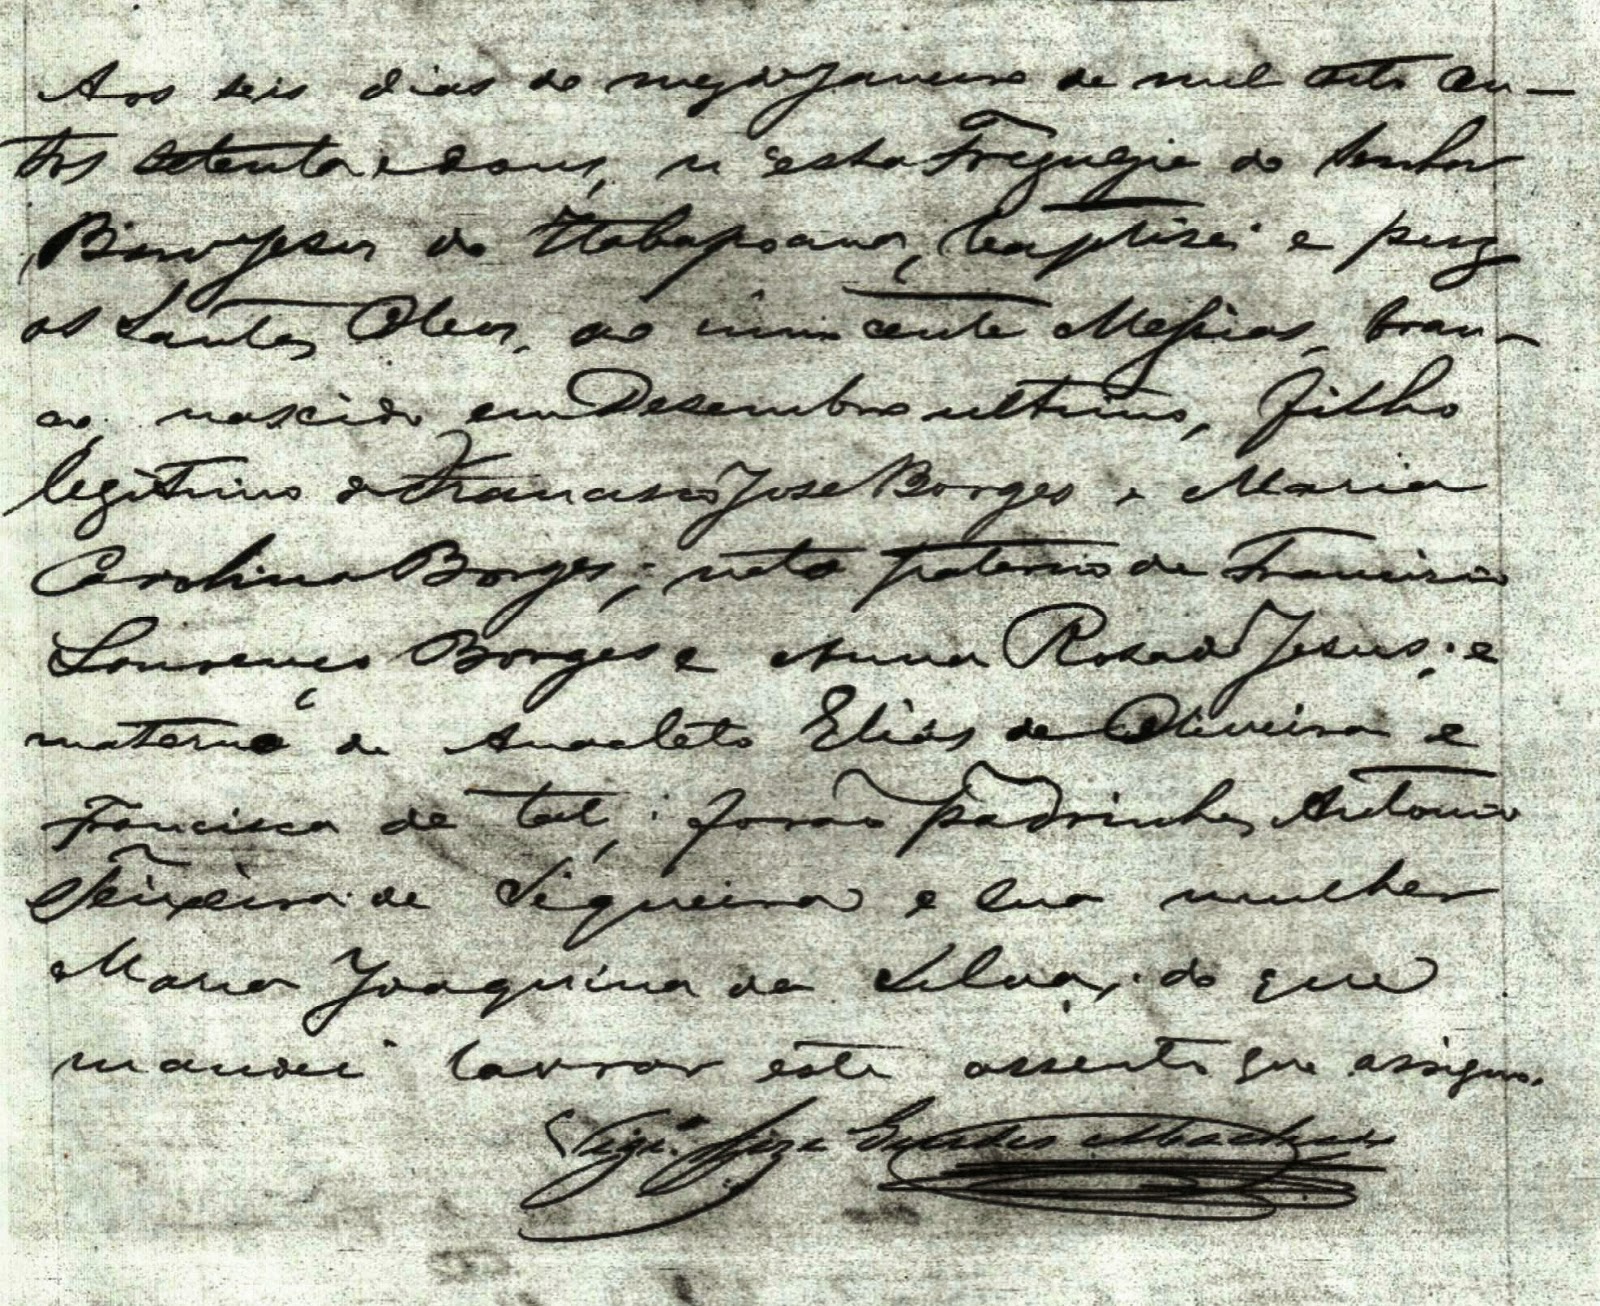 Aos seis dias do mez de Janeiro de mil oito cen-
tos setenta e dous, n'esta Freguezia do Senhor
Bom Jesus do Itabapoana, baptisei e puz
os Santos Oleos, ao innocente Messias, bran-
co, nascido em Desembro ultimo, filho
legitimo de Francisco José Borges e Maria
Carolina Borges; neto paterno de Francisco
Lourenço Borges e Anna Rosa de Jesus; e
materno de Anacleto Elias de Oliveira e
Francisca de tal; forão padrinhos Antonio
Teixeira de Siqueira e sua mulher
Maria Joaquina da Silva, do que
mandei lavrar este assento que assigno.
Vigr.º